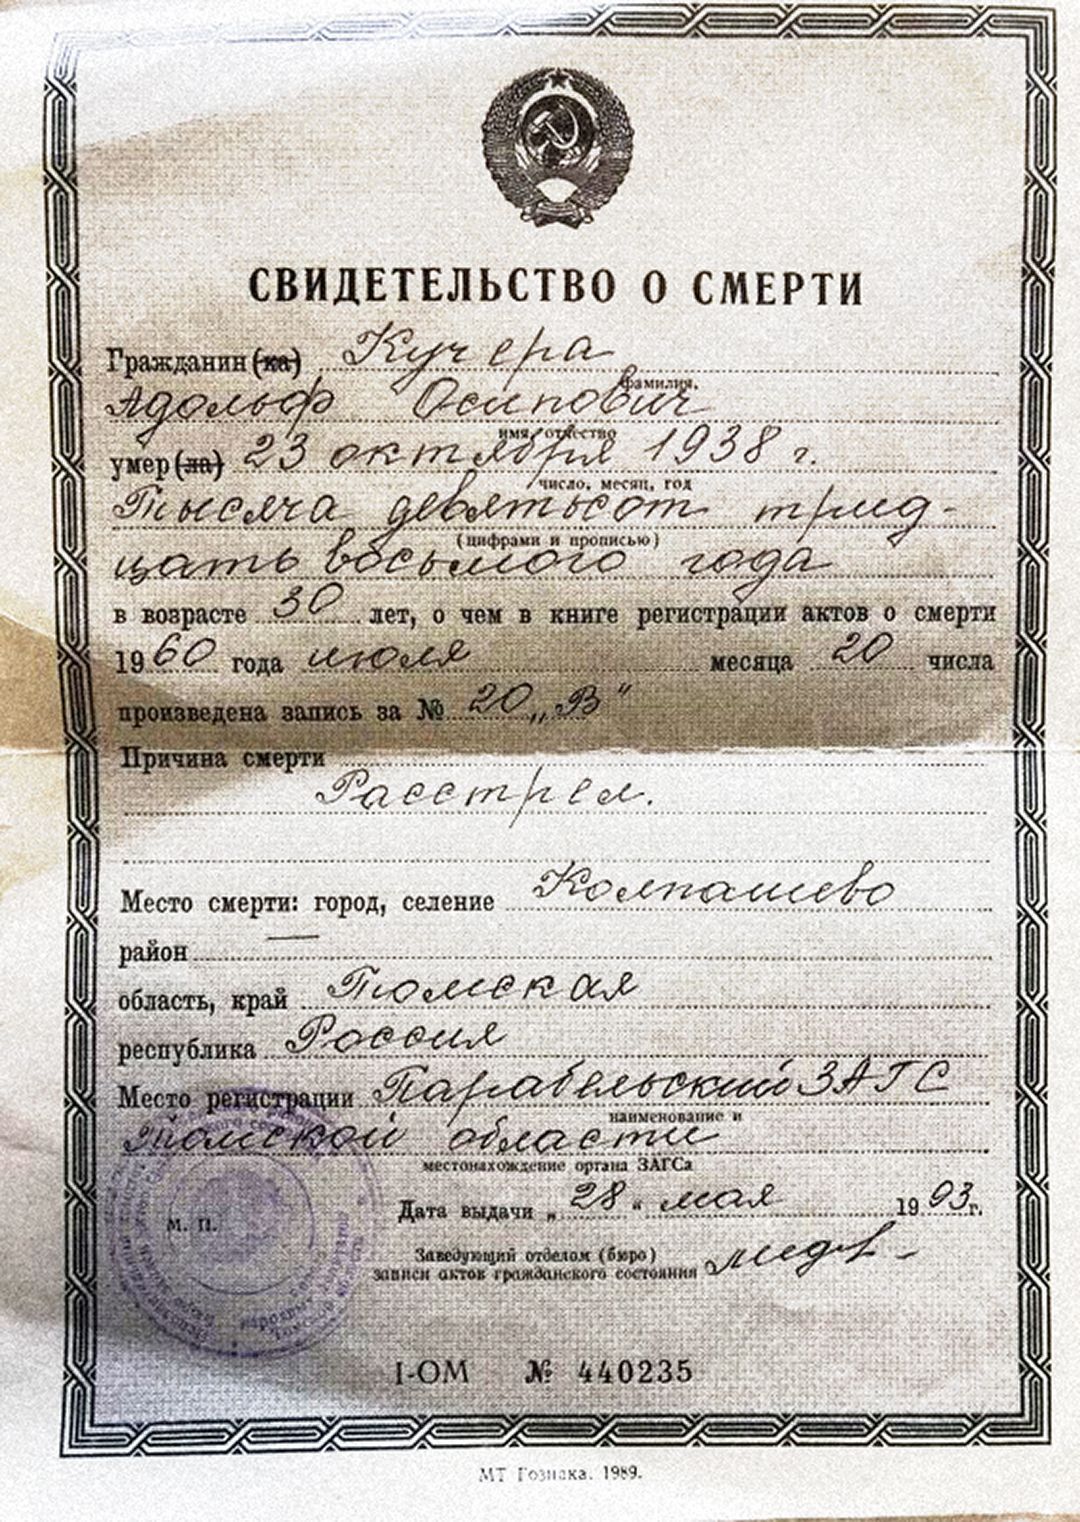 СВИДЕТЕЛЬСТВО О СМЕРТИ
Гражданин (ка) Кучера
фамилия,
Адольф Осипович
имя, отчество
умер (ла) 23 октября 1938 г.
число, месяц, год
Тысяча девятьсот трид-
(цифрами и прописью)
цать восьмого года
в возрасте 30 лет, о чем в книге регистрации актов о смерти
1960 года июля месяца 20 числа
произведена запись за № 20 „В“
Причина смерти
Расстрел.
Место смерти: город, селение Колпашево
район —
область, край Томская
республика Россия
Место регистрации Парабельский ЗАГС
наименование и
Томской области
местонахождение органа ЗАГСа
М. П.
Дата выдачи „28“ мая 1993г.
Заведующий отделом (бюро)
записи актов гражданского состояния
I-ОМ № 440235
МТ Гознака. 1989.